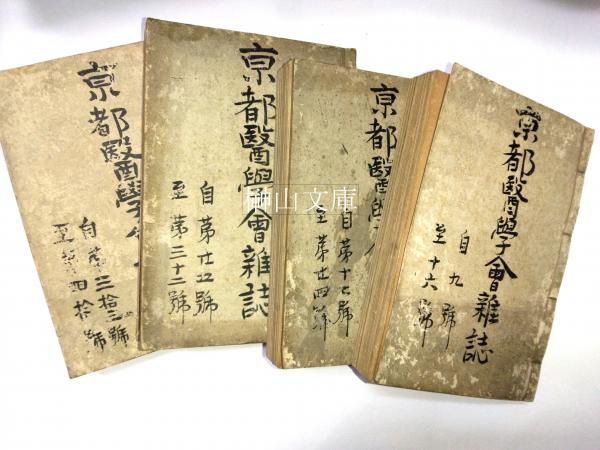 京都醫學會雜誌
自九號
至十六號
京都醫學會
自第十七號
至第廿四號
京都醫學會雜誌
自第廿五號
至第三十二號
京都醫學會
自第三拾三號
至第四拾號
榊山文庫